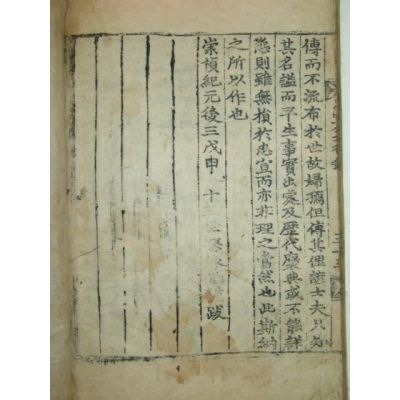 傳而不流布於世故婦孺但傳其俚諺士夫只知
其名諡而平生事實出處及歷代褒典或不能詳
悉則雖無損於忠宣而亦非理之當然也此斯納
之所以作也
崇禎紀元後三戊申 十 世孫 跋